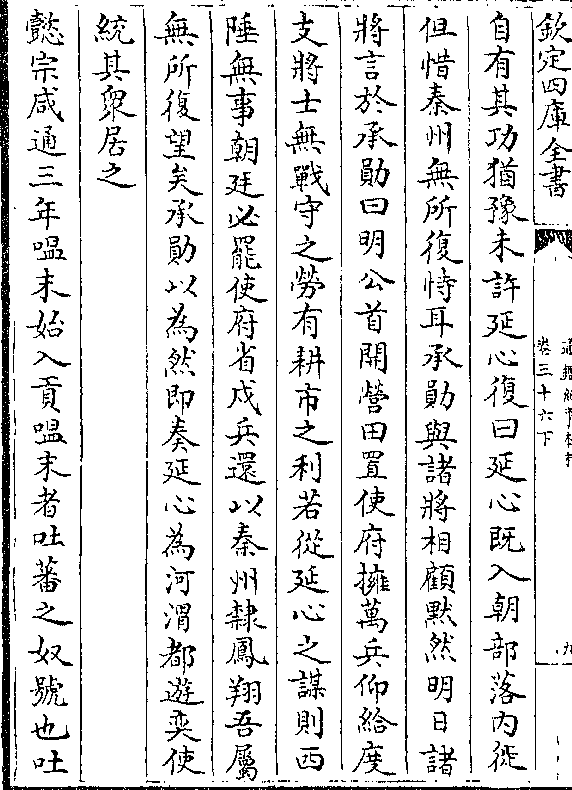 欽定四庫全書
卷三十六下
自有其功猶豫未許延心復曰延心既入朝部落内徙
但惜秦州無所復恃耳承勛與諸將相顧默然明日諸
將言於承勛曰明公首開營田置使府擁萬兵仰給度
支將士無戰守之勞有耕市之利若從延心之謀則西
陲無事朝廷必罷使府省戍兵還以秦州隸鳳翔吾屬
無所復望矣承勛以為然即奏延心為河渭都遊奕使
統其衆居之
懿宗咸通三年嗢末始入貢嗢末者吐蕃之奴號也吐